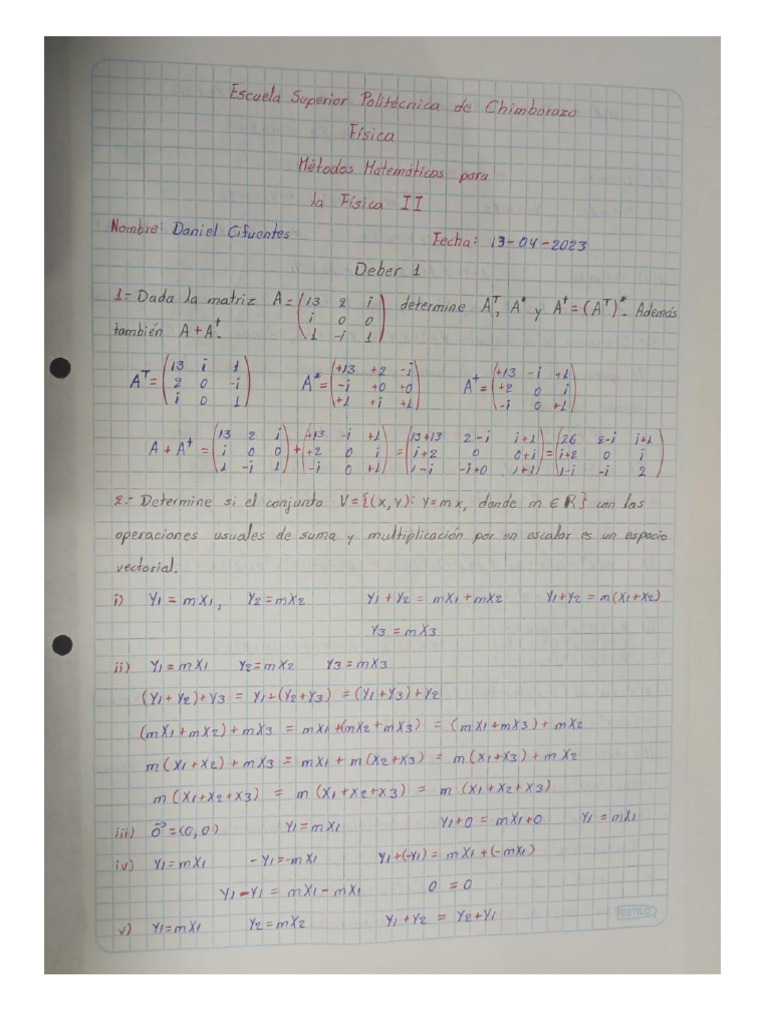 Escuela Superior Politécnica de Chimborazo
Física
Métodos Matemáticos para
la Física II
Nombre: Daniel Cifuentes Fecha: 19-04-2023
Deber 1
1.- Dada la matriz A = (13 2 i; i 0 0; 1 -i 1) determine Aᵀ, A* y A⁺ = (Aᵀ)*. Además
también A + A⁺.
Aᵀ = (13 i 1; 2 0 -i; i 0 1) A* = (+13 +2 -i; -i +0 +0; +1 +i +1) A⁺ = (+13 -i +1; +2 0 i; -i 0 +1)
A + A⁺ = (13 2 i; i 0 0; 1 -i 1) + (+13 -i +1; +2 0 i; -i 0 +1) = (13+13 2-i i+1; i+2 0 0+i; 1-i -i+0 1+1) = (26 2-i i+1; i+2 0 i; 1-i -i 2)
2.- Determine si el conjunto V = {(x, y): y = mx, donde m ∈ R} con las
operaciones usuales de suma y multiplicación por un escalar es un espacio
vectorial.
i) Y1 = mX1, Y2 = mX2 Y1 + Y2 = mX1 + mX2 Y1 + Y2 = m(X1+X2)
Y3 = mX3
ii) Y1 = mX1 Y2 = mX2 Y3 = mX3
(Y1 + Y2) + Y3 = Y1 + (Y2 + Y3) = (Y1 + Y3) + Y2
(mX1 + mX2) + mX3 = mX1 + (mX2 + mX3) = (mX1 + mX3) + mX2
m(X1 + X2) + mX3 = mX1 + m(X2 + X3) = m(X1 + X3) + mX2
m(X1 + X2 + X3) = m(X1 + X2 + X3) = m(X1 + X2 + X3)
iii) 0⃗ = (0, 0) Y1 = mX1 Y1 + 0 = mX1 + 0 Y1 = mX1
iv) Y1 = mX1 -Y1 = -mX1 Y1 + (-Y1) = mX1 + (-mX1)
Y1 - Y1 = mX1 - mX1 0 = 0
v) Y1 = mX1 Y2 = mX2 Y1 + Y2 = Y2 + Y1
ESTILO